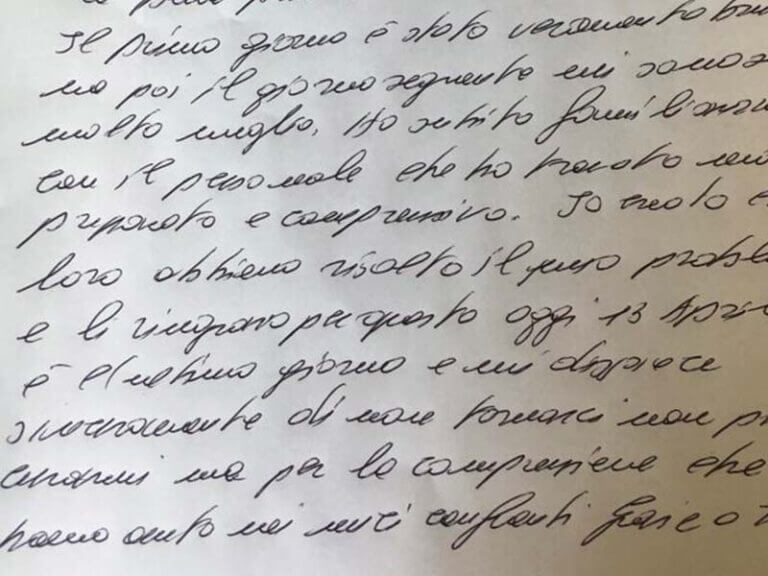 Il primo giorno è stato veramente
ma poi il giorno seguente mi sono
molto meglio. Ho subito
con il personale che ho trovato
preparato e comprensivo. Io credo
loro abbiano risolto il mio
e li ringrazio per questo oggi 13
è l'ultimo giorno e mi dispiace
sinceramente di non tornarci non
curarmi ma per la comprensione che
hanno avuto nei miei confronti